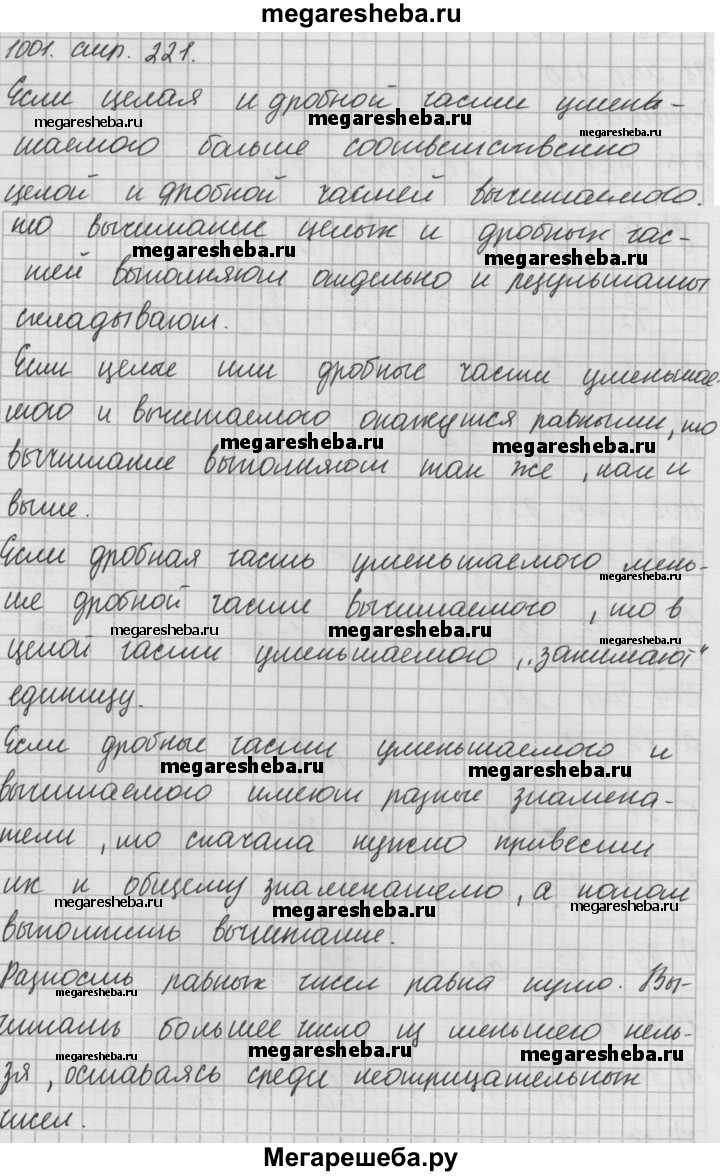 megaresheba.ru
1001. стр. 221.
Если целая и дробной части умень-
megaresheba.ru megaresheba.ru megaresheba.ru
шаемого больше соответственно
целой и дробной частей вычитаемого.
то вычитание целых и дробных час-
megaresheba.ru megaresheba.ru
тей выполняют отдельно и результаты
складывают.
Если целые или дробные части уменьшае-
мого и вычитаемого окажутся равными, то
megaresheba.ru megaresheba.ru
вычитание выполняют так же, как и
выше.
Если дробная часть уменьшаемого мень-
megaresheba.ru
ше дробной части вычитаемого, то в
megaresheba.ru megaresheba.ru megaresheba.ru
целой части уменьшаемого „занимают“
единицу.
Если дробные части уменьшаемого и
megaresheba.ru megaresheba.ru
вычитаемого имеют разные знамена-
тели, то сначала нужно привести
их к общему знаменателю, а потом
megaresheba.ru megaresheba.ru megaresheba.ru
выполнить вычитание.
Разность равных чисел равна нулю. Вы-
megaresheba.ru megaresheba.ru
читать большее число из меньшего нель-
megaresheba.ru megaresheba.ru megaresheba.ru
зя, оставаясь среди неотрицательных
чисел.
Мегарешеба.ру